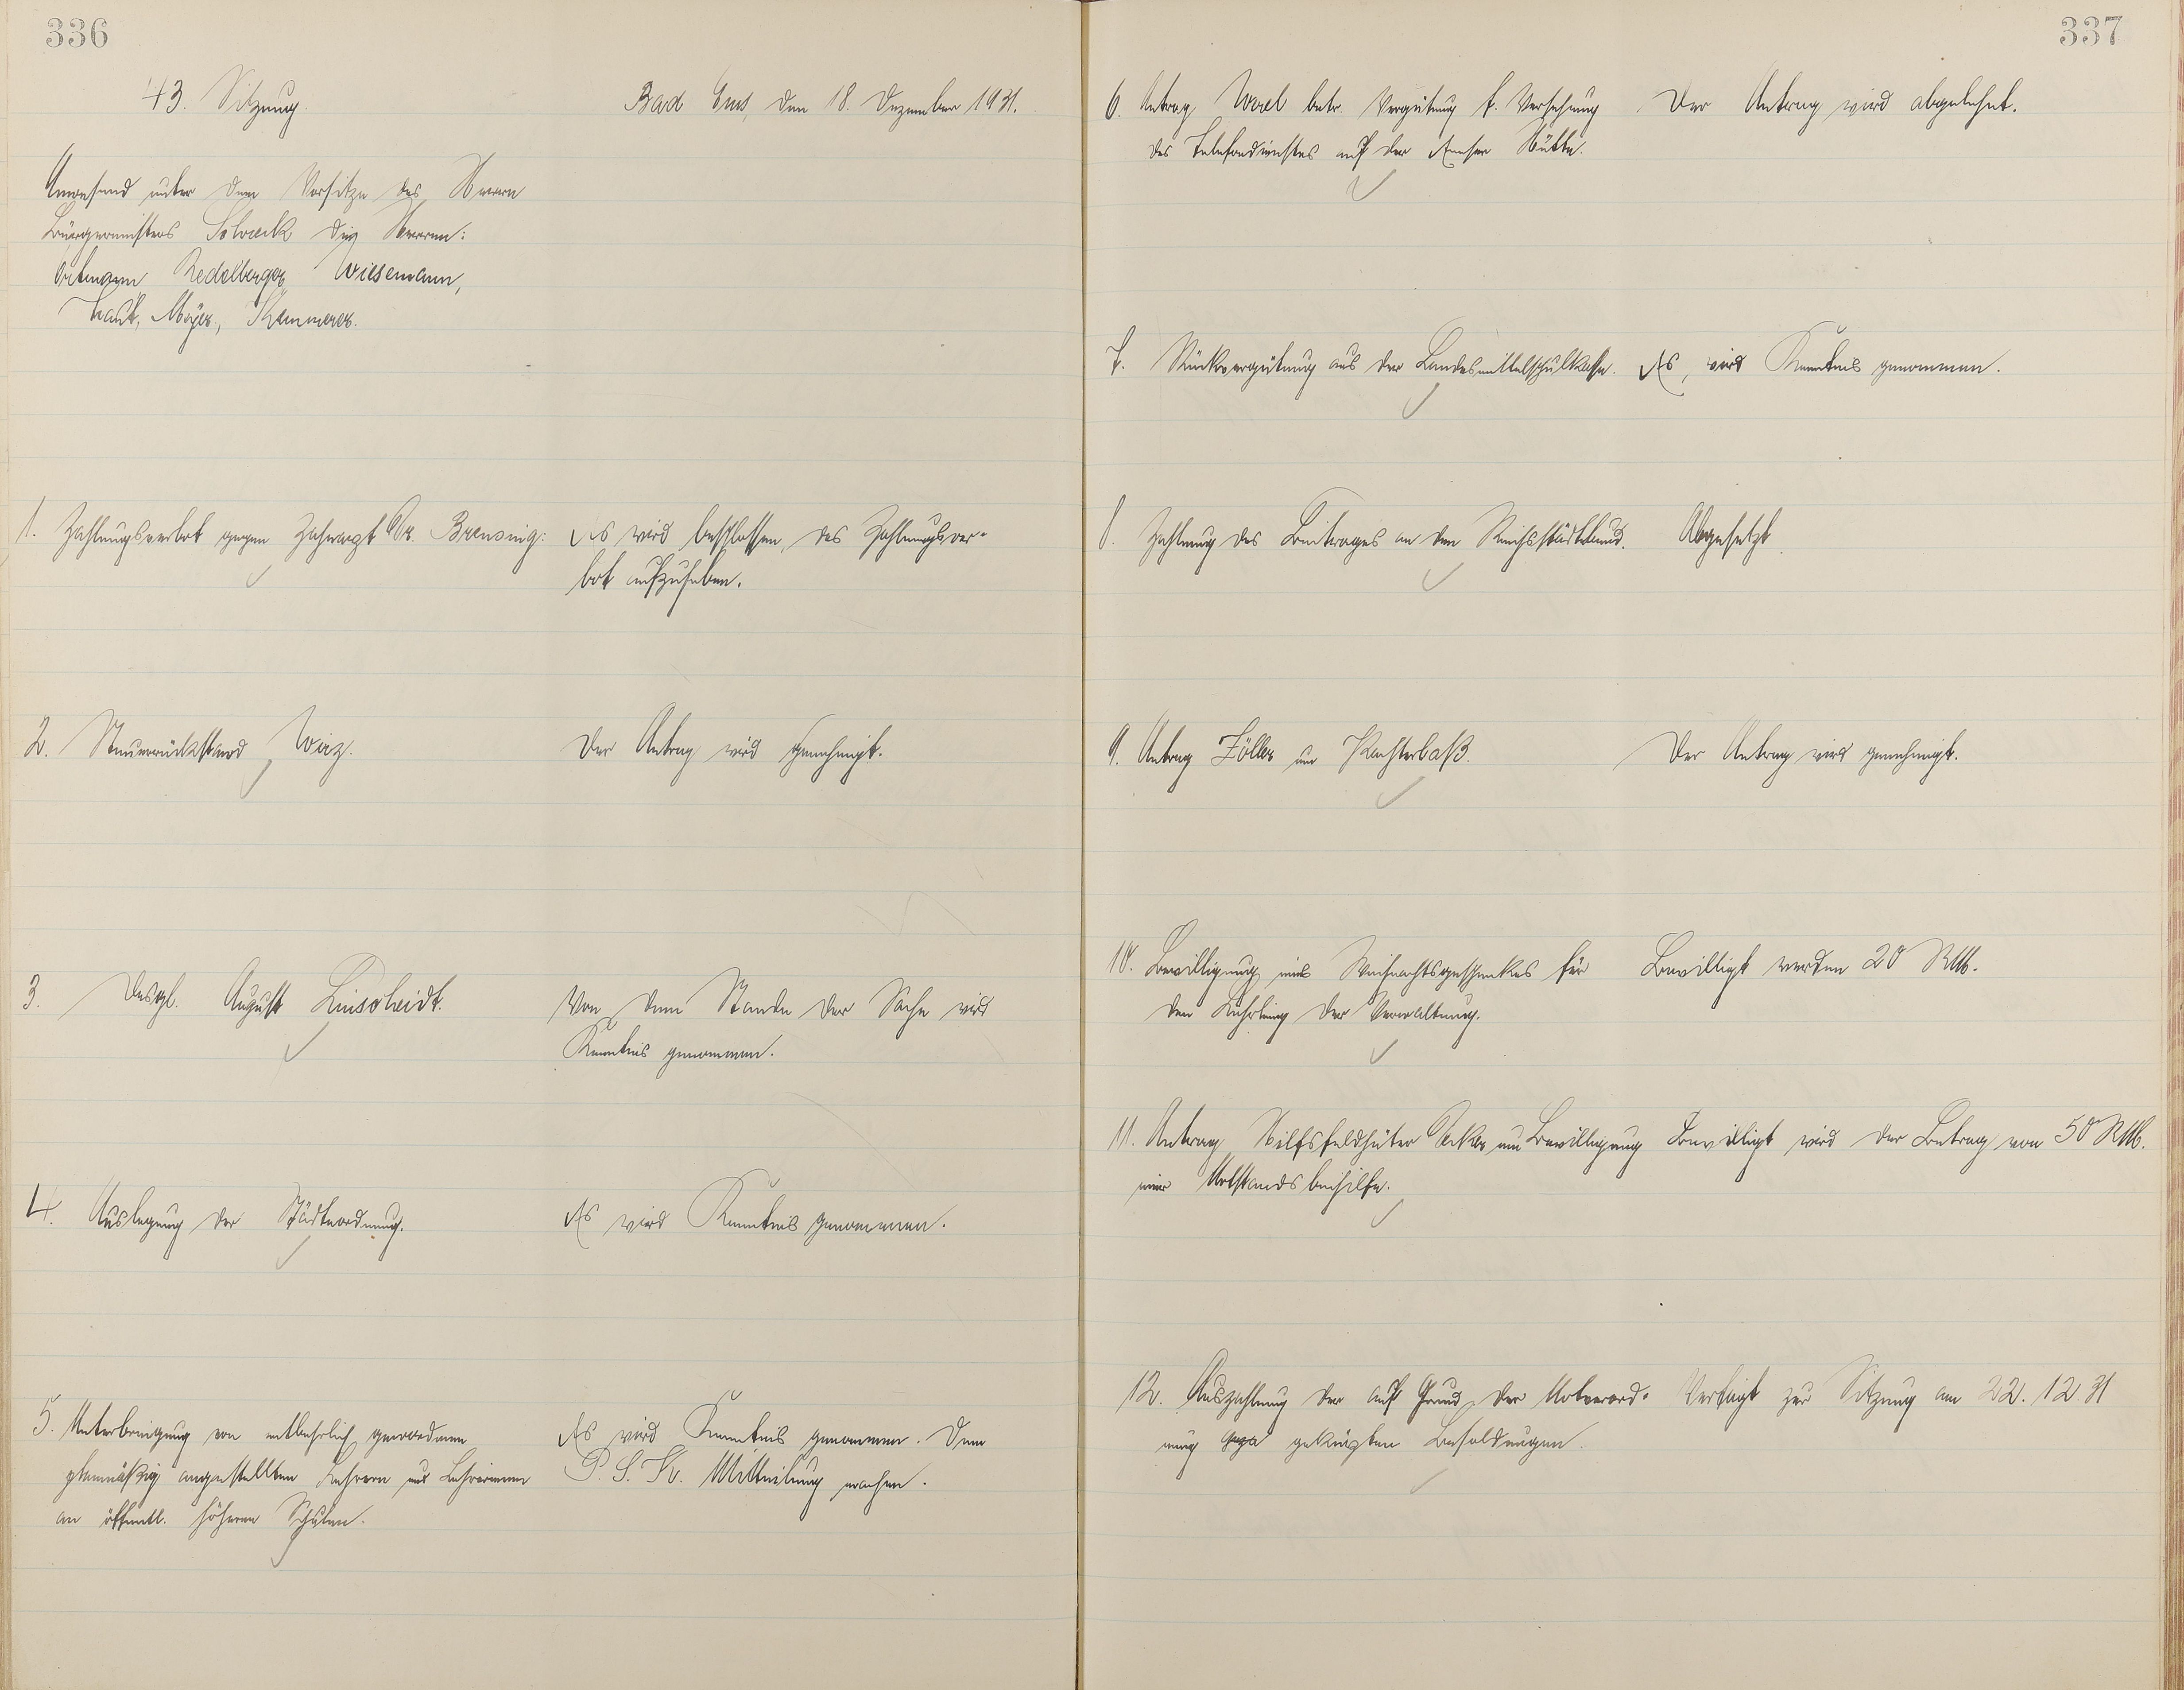 336
43. Sitzung.
Bad Ems, den 18. Dezember 1931.
Anwesend unter dem Vorsitze des Herrn
Bürgermeisters Schreck die Herren:
Ortmann, Redelberger, Wiesemann,
Haut, Meyer, Kemmerer.
1. Zahlungsverbot gegen Zahnarzt Dr. Brensing.
Es wird beschlossen, das Zahlungsver-
bot aufzuheben.
2. Steuerrückstand Wirz.
Der Antrag wird genehmigt.
3. Desgl. August Linscheidt.
Von dem Stande der Sache wird
Kenntnis genommen.
4. Auslegung der Städteordnung.
Es wird Kenntnis genommen.
5. Unterbringung von entbehrlich gewordenen
planmäßig angestellten Lehrern und Lehrerinnen
an öffentl. höheren Schulen.
Es wird Kenntnis genommen. Dem
P. S. K. Mitteilung machen.
337
6. Antrag betr. Vergütung f. Versehung
des Telefondienstes auf der Emser Hütte.
Der Antrag wird abgelehnt.
7. Rückvergütung aus der Landesmittelschulkasse.
Es wird Kenntnis genommen.
8. Zahlung des Beitrages an den Reichsstädtebund.
Abgesetzt
9. Antrag Zöller um Pachterlaß.
Der Antrag wird genehmigt.
10. Bewilligung eines Weihnachtsgeschenkes für
den Lehrling der Verwaltung.
Bewilligt werden 20 RM.
11. Antrag Hilfsfeldhüter um Bewilligung
einer Notstandsbeihilfe.
Bewilligt wird der Betrag von 50 RM.
12. Auszahlung der auf Grund der Notverord-
nung gekürzten Besoldungen.
Vertagt zur Sitzung am 22.12.31